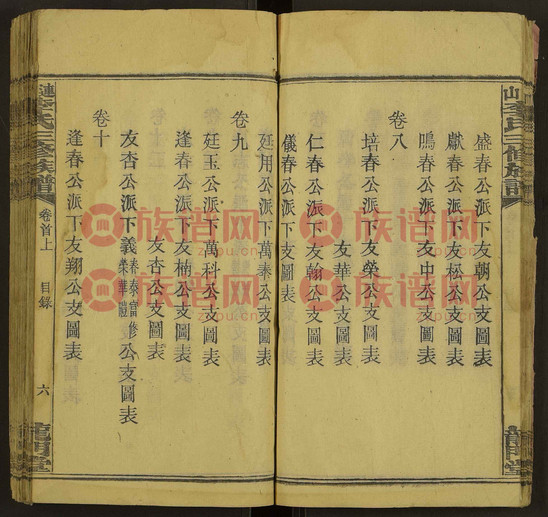 盛春公派下友朝公支圖表
獻春公派下友松公支圖表
鳴春公派下友中公支圖表
卷八
培春公派下友榮公支圖表
友華公支圖表
仁春公派下友翰公支圖表
儀春公派下支圖表
廷用公派下萬泰公支圖表
卷九
廷玉公派下萬科公支圖表
逢春公派下友楠公支圖表
友杏公支圖表
友杏公派下義春泰富修榮華禮公支圖表
卷十
逢春公派下友翔公支圖表
漣李氏三修族譜
卷首上
目錄
六
龍門堂
族谱网
zupu.cn